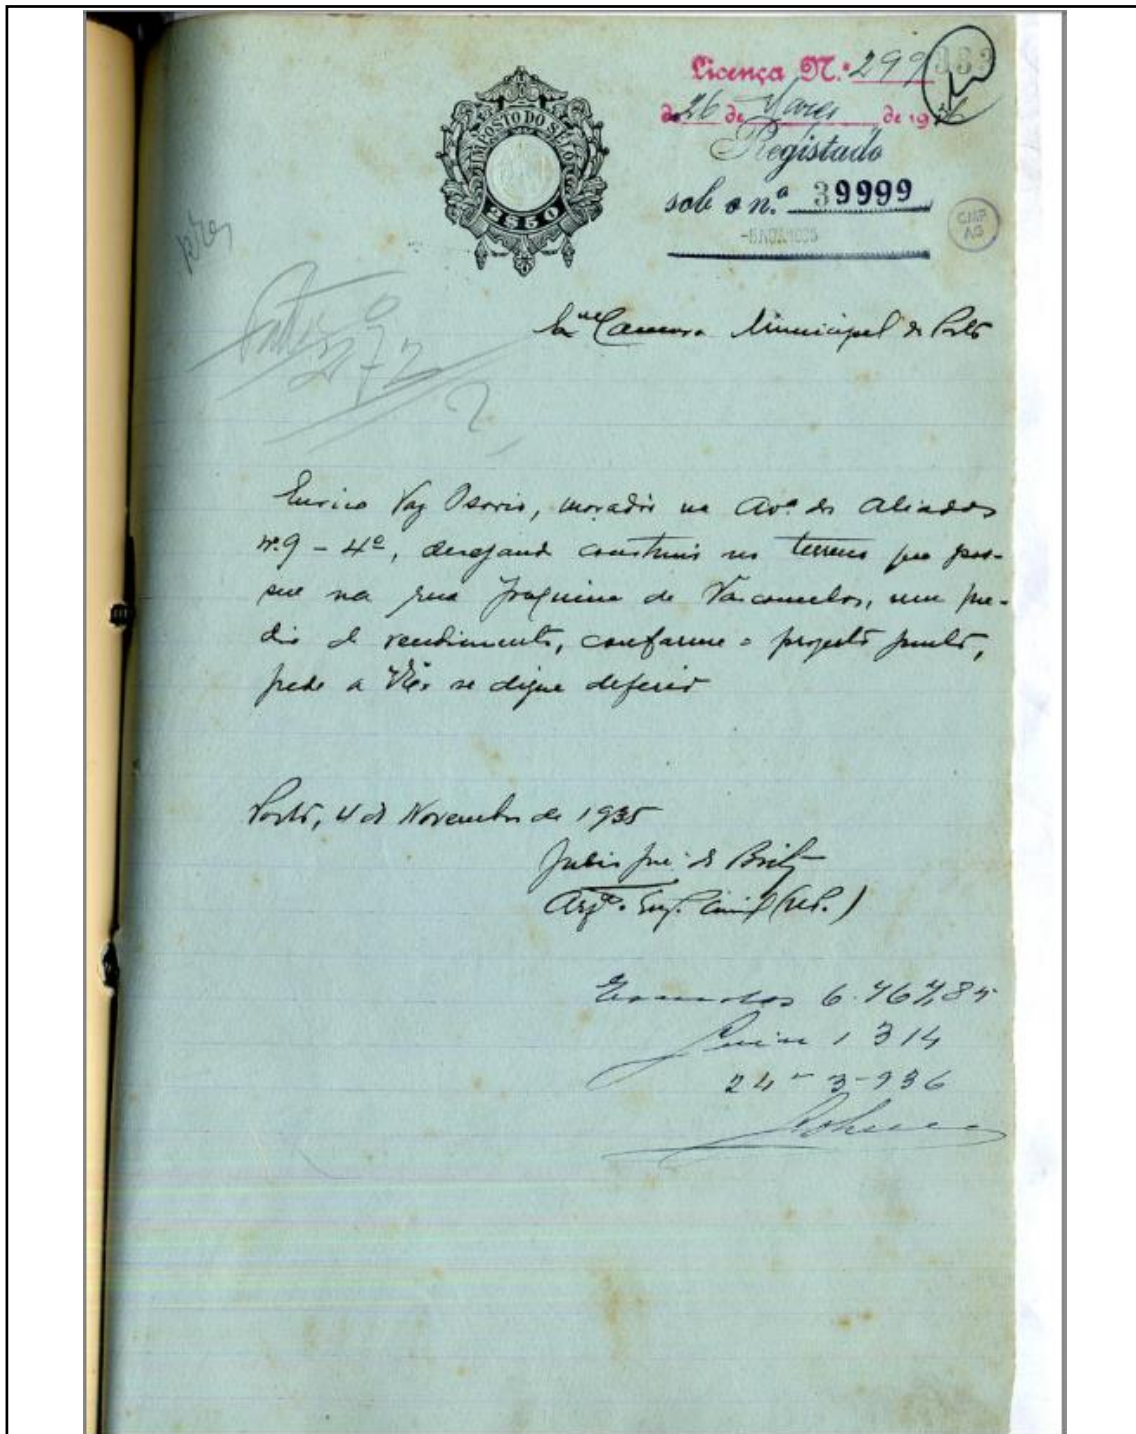 Licença N.º 299
de 26 de Março de 1936
Registado
sob o n.º 39999
IMPOSTO DO SELO
2$50
CMP
AG
272
2
Camara Municipal do Porto
Eurico Vaz Osorio, morador na Avª dos Aliados
nº 9 - 4º, desejando construir no terreno que pos-
sue na rua Joaquim de Vasconcelos, um pre-
dio de rendimento, conforme o projecto junto,
pede a se digne deferir
Porto, 4 de Novembro de 1935
Julio José de Brito
Arqº. Eng. Civil
Guia 1314
24-3-936